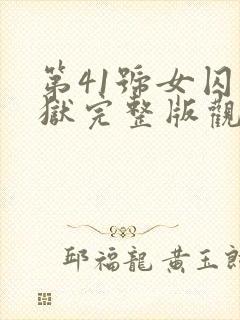 第41號女囚
獄完整版觀
邱福龍 黃玉郎